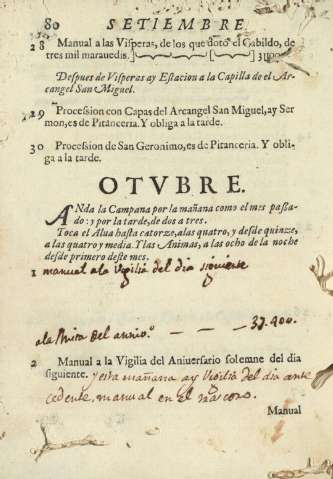 80 SETIEMBRE
28 Manual a las Visperas, de los que dotò el Cabildo, de
tres mil maravedis. 3000
Despues de Visperas ay Estacion a la Capilla de el Ar-
cangel San Miguel.
29 Procession con Capas del Arcangel San Miguel, ay Ser
mon, es de Pitanceria. Y obliga a la tarde.
30 Procession de San Geronimo, es de Pitanceria. Y obli-
ga a la tarde.
OTVBRE.
ANda la Campana por la mañana como el mes passa-
do: y por la tarde, de dos a tres.
Toca el Alua hasta catorze, a las quatro, y desde quinze,
a las quatro y media. Y las Animas, a las ocho de la noche
desde primero deste mes.
1 manual a la Vigilia del dia siguiente
a la Missa del anniv.º — — — 37.400.
2 Manual a la Vigilia del Aniuersario solemne del dia
siguiente. y esta mañana ay Vigilia del dia ante
cedente, manual en el
Manual